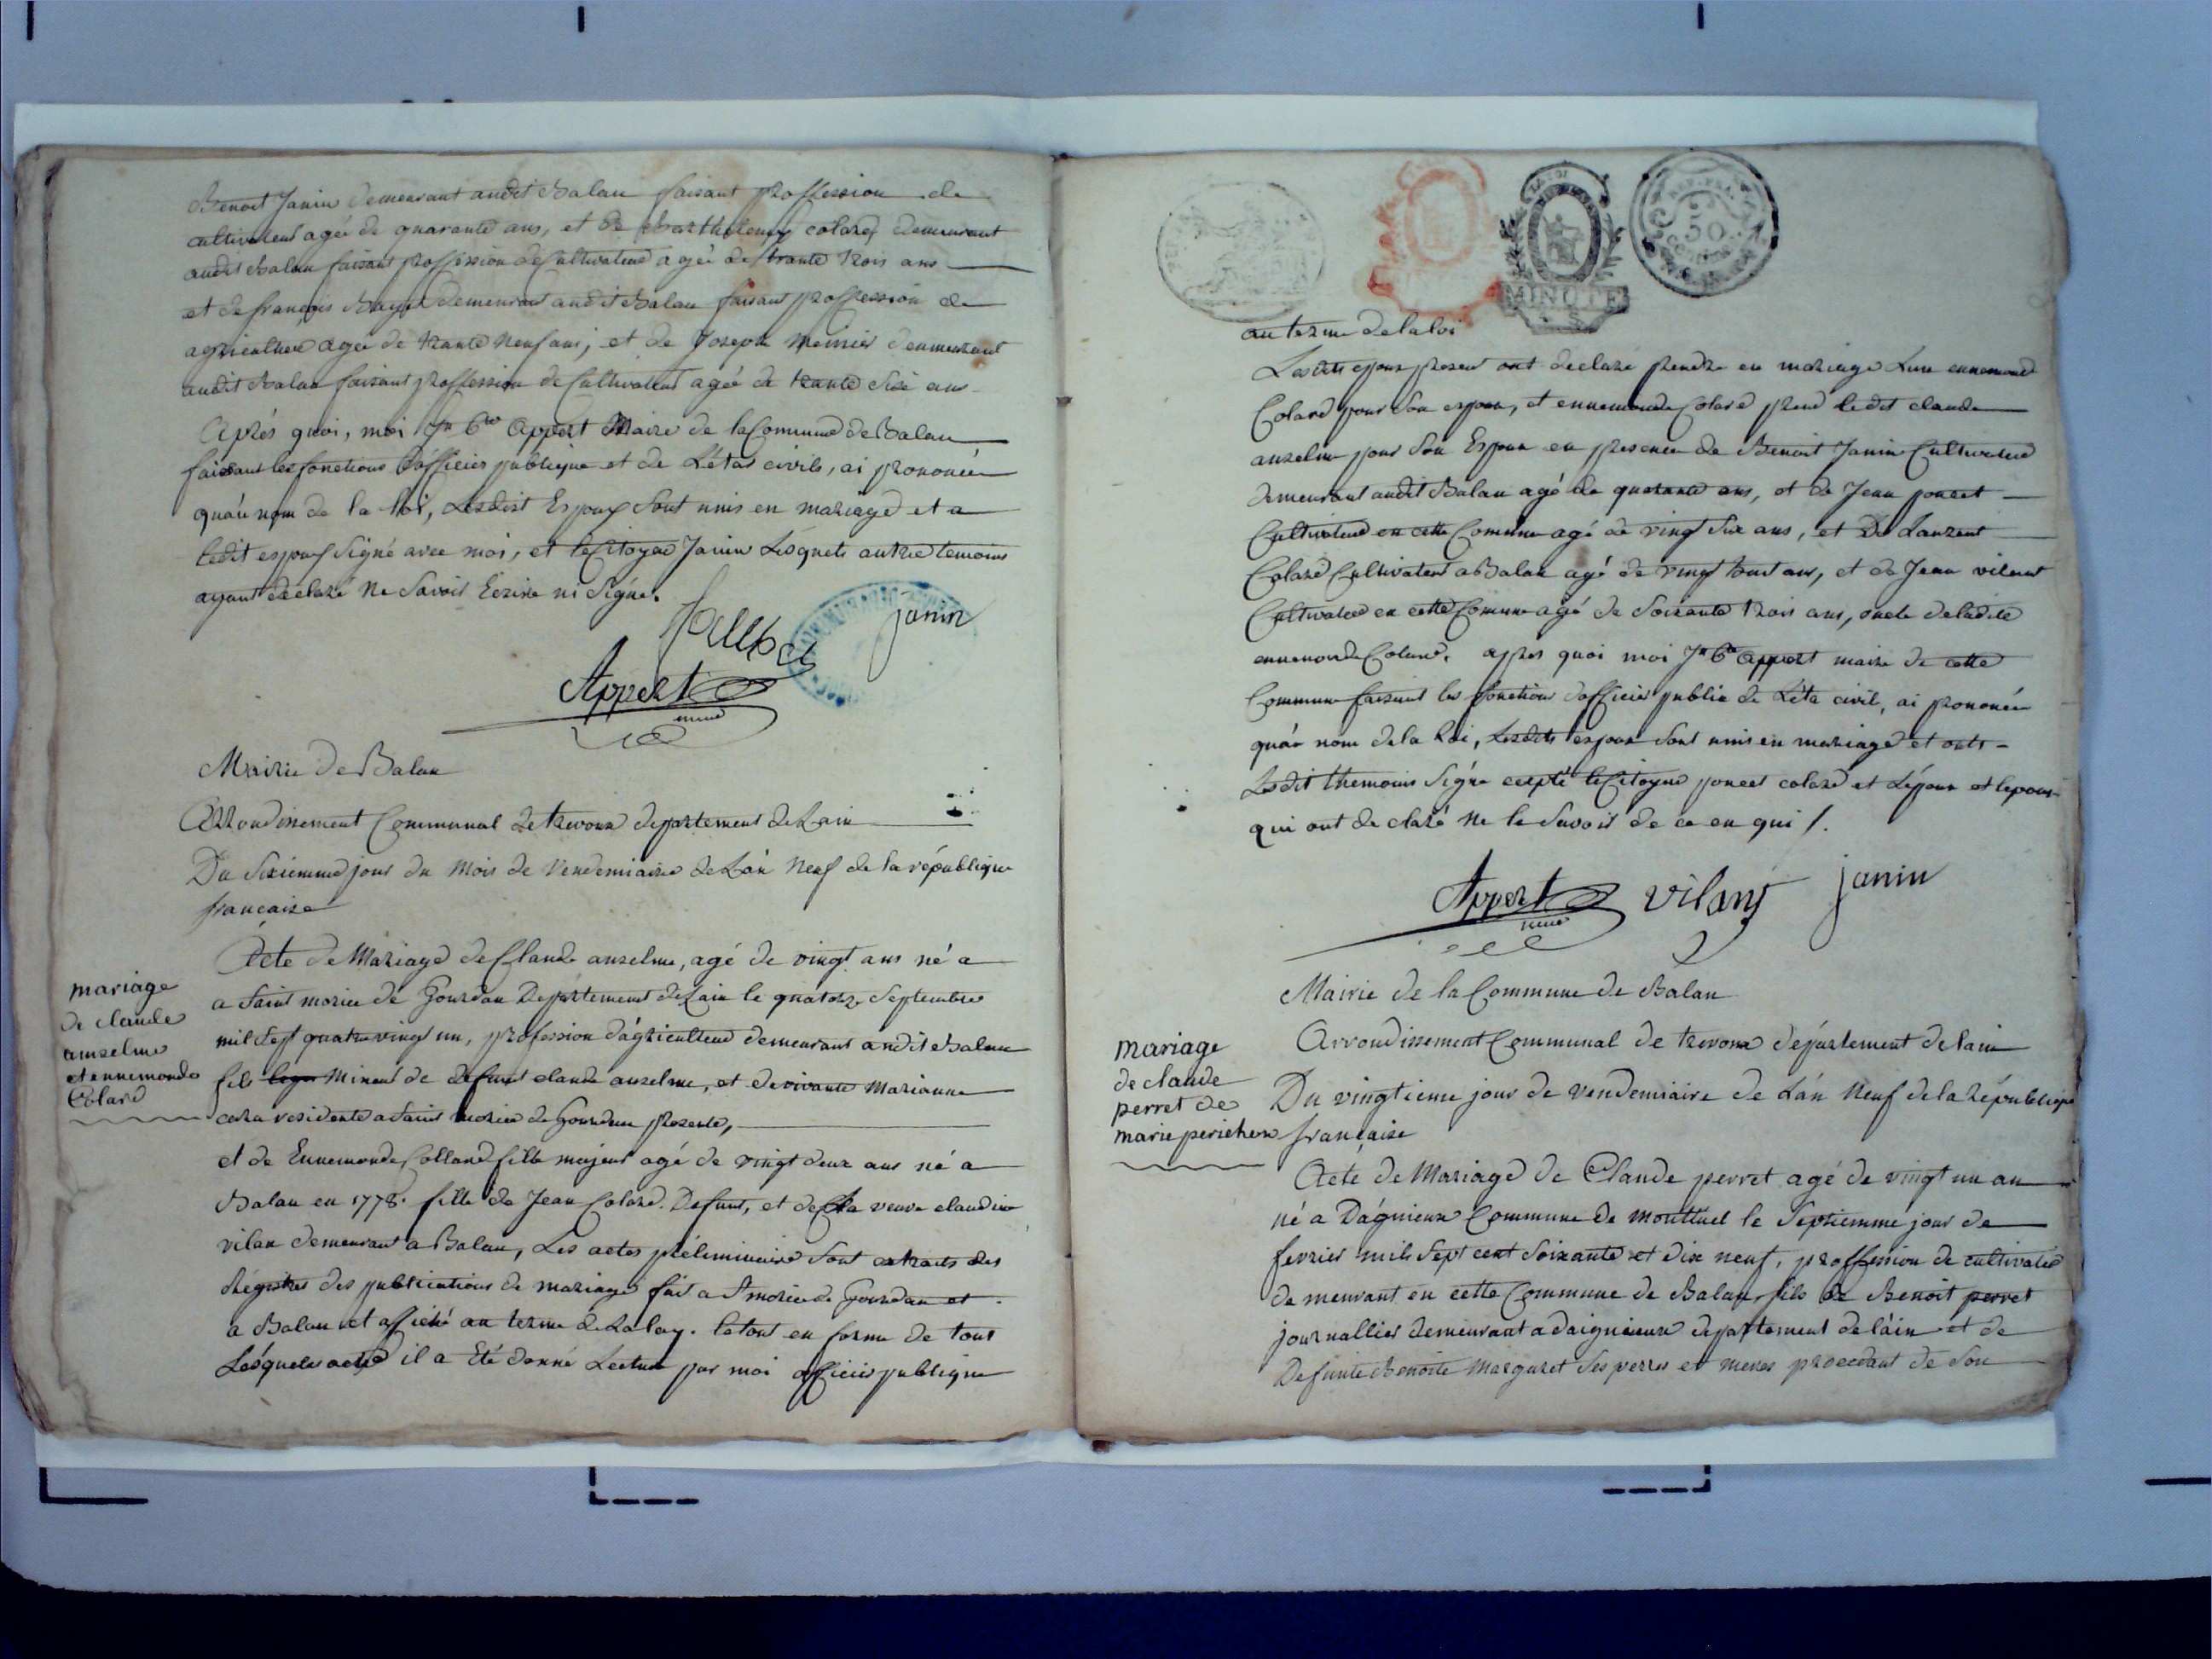 Benoit Janin demeurant audit Balan faisant proffession de
cultivateur agée de quarante ans, et de Barthelemy colard demeurant
audit Balan faisant proffession de Cultivateur agée de trante trois ans
et de françois demeurant audit Balan faisant proffession de
agriculteur agée de trante neuf ans, et de Joseph Meinier demeurant
audit Balan faisant proffession de Cultivateur agée de trante six ans
Après quoi, moi Jn Bte Appert Maire de la Commune de Balan
faissant les fonctions d'officier publique et de L'état civile, ai prononcée
qu'au nom de la loi, Lesdist Espoux Sont unis en mariage et a
ledit espoux Signé avec moi, et le Citoyen Janin Lesquels autre temoins
ayant declaré Ne Savoir Ecrire ni Signé.
janin
Appert
maire
Mairie de Balan
Arrondissement Communal de trevoux departement de Lain
Du Sixiemme jour du Mois de Vendemiaire de L'an Neuf de la république
française
Acte de Mariage de Claude anzelme, agé de vingt ans né a
mariage
de claude
anzelme
et ennemonde
Colard
a Saint morice de Gourdan Departement de Lain le quatorze Septembre
mil Sept quatre vingt un, profession d'agriculteur demeurant audit Balan
fils Mineur de defunt claude anzelme, et de vivante Marianne
residente a Saint morice de Gourdan presente,
et de Ennemonde Colland fille majeur agé de vingt deux ans né a
Balan en 1778. fille de Jean Colard. Defunt, et de la veuve claudine
vilan demeurant a Balan, Les actes préliminaire Sont extraits des
Régistres des publications de mariage fait a St morice de Gourdan et
a Balan et affiché au terme de La loy. le tout en forme de tout
Lesqueles actes il a Eté donné Lecture par moi officier publique
MINUTE
50
au terme de la loi
Lesdits epoux presen ont declare prendre en mariage L'une ennemond
Colard pour Son espoux, et ennemonde Colard prend ledit claude
anzelme pour Son Espoux en presence de Benoit Janin Cultivateur
demeurant audit Balan agé de quarante ans, et de Jean poncet
Cultivateur en cette Commune agé de vingt Six ans, et De Laurent
Colard Cultivateur a Balan agé de vingt ans, et de Jean vilant
Cultivateur en cette Comune agé de Soixante trois ans, oncle de ladite
ennemonde Colard. apres quoi moi Jn Bte appert maire de cette
Commune faisant les fonctions d'officier public de L'éta civil, ai prononcée
qu'au nom de la loi, Lesdits espoux Sont unis en mariage et onts
Lesdit themoins Signe le Citoyen poncet colard et L'époux et lepouse
qui ont declaré Ne le Savoir de ce en qui /.
Appert
maire
vilant
janin
Mairie de la Commune de Balan
Arrondissement Communal de trevoux département de lain
mariage
de claude
perret de
marie
Du vingtieme jour de vendemiaire de L'an Neuf de la République
française
Acte de Mariage de Claude perret agé de vingt un an
né a Dagnieux Commune de Montluel le Septiemme jour de
fevrier mils Sept cent Soixante et dix neuf, proffession de cultivateur
demeurant en cette Commune de Balan, fils de Benoit perret
journallier demeurant a daignieux departement de lain et de
Defunte Benoite Margaret Ses perres et meres procedant de Son